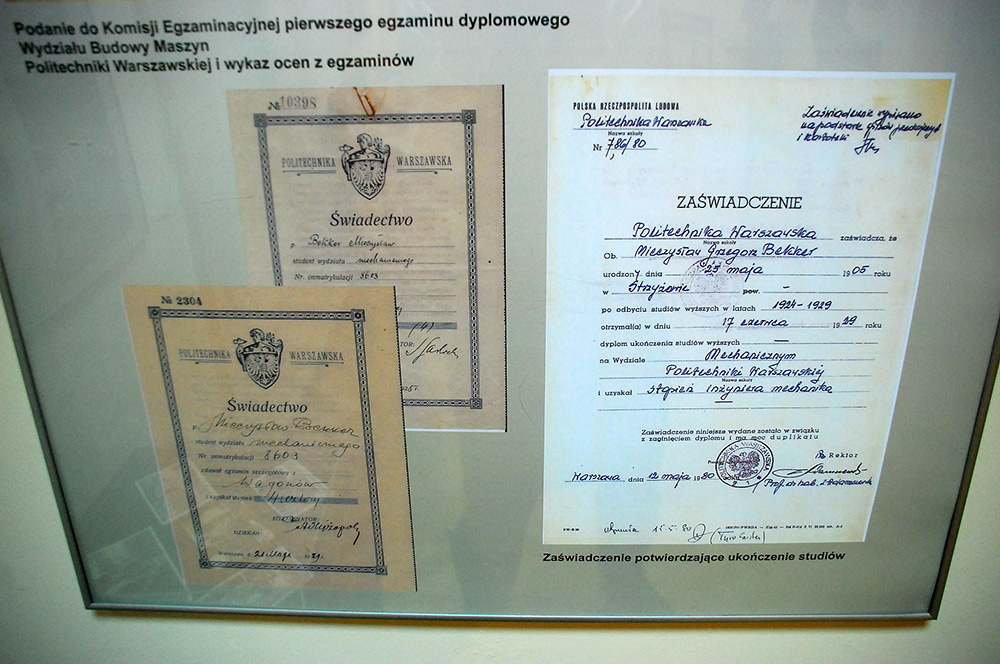 Podanie do Komisji Egzaminacyjnej pierwszego egzaminu dyplomowego
Wydziału Budowy Maszyn
Politechniki Warszawskiej i wykaz ocen z egzaminów
№ 10398
POLITECHNIKA WARSZAWSKA
Świadectwo
p. Bekker Mieczysław
student wydziału mechanicznego
Nr. immatrykulacji 8603
№ 2304
POLITECHNIKA WARSZAWSKA
Świadectwo
p Mieczysław Bekker
student wydziału mechanicznego
Nr immatrykulacji 8603
zdawał egzamin szczegółowy z
Wagonów
i uzyskał stopień
EGZAMINATOR:
DZIEKAN:
Warszawa, d. 21 Maja 1929.
POLSKA RZECZPOSPOLITA LUDOWA
Politechnika Warszawska
Nazwa szkoły
Nr 786/80
Zaświadczenie wypisano
na podstawie
i kartoteki
ZAŚWIADCZENIE
Politechnika Warszawska zaświadcza, że
Nazwa szkoły
Ob. Mieczysław Grzegorz Bekker
urodzony dnia 25 maja 1905 roku
w Strzyżowie pow. –
po odbyciu studiów wyższych w latach 1924-1929
otrzymał(a) w dniu 17 czerwca 1929 roku
dyplom ukończenia studiów wyższych —
na Wydziale Mechanicznym
Politechniki Warszawskiej
Nazwa szkoły
i uzyskał stopień inżyniera mechanika
Zaświadczenie niniejsze wydane zostało w związku
z zaginięciem dyplomu i ma moc duplikatu
Rektor
POLITECHNIKA WARSZAWSKA
Warszawa dnia 12 maja 1980
Prof. dr hab.
15.5.80
Zaświadczenie potwierdzające ukończenie studiów